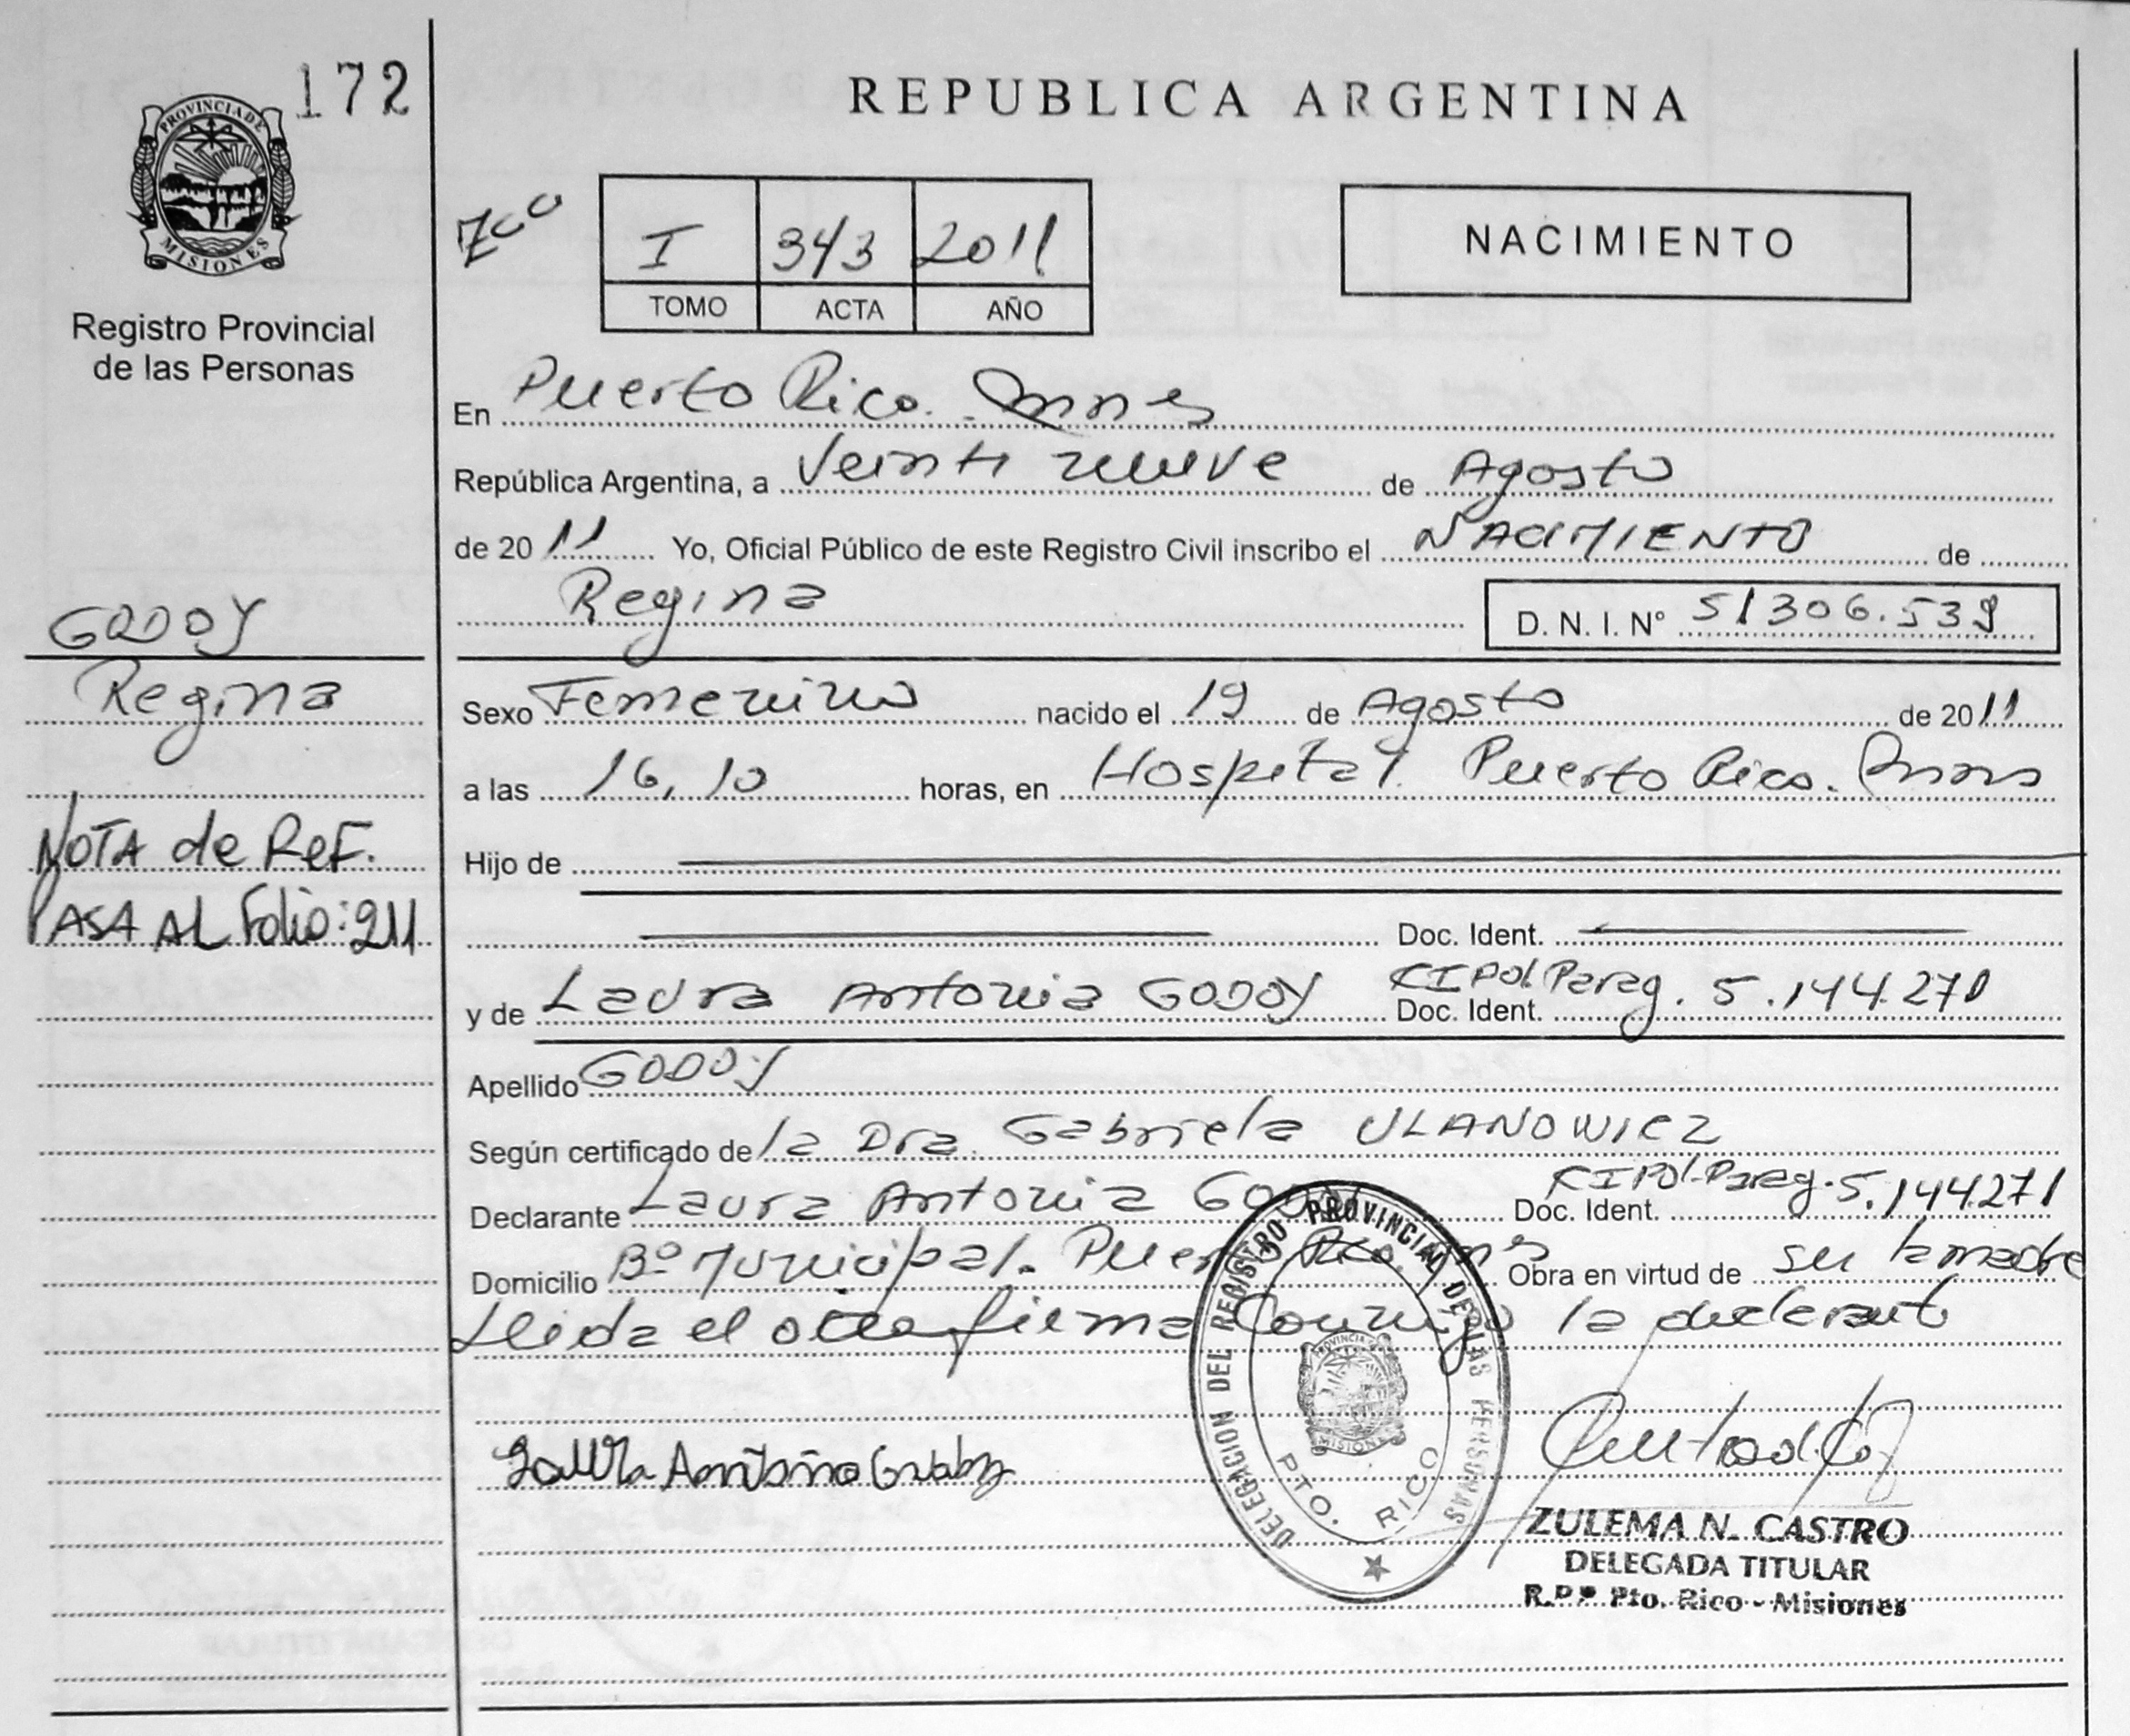 172
PROVINCIA DE
MISIONES
Registro Provincial
de las Personas
REPUBLICA ARGENTINA
I 343 2011
TOMO ACTA AÑO
NACIMIENTO
En Puerto Rico. Mnes
República Argentina, a Veinti nueve de Agosto
de 2011 Yo, Oficial Público de este Registro Civil inscribo el NACIMIENTO de
Regina D. N. I. N° 51306.539
GODOY
Regina
NOTA de REF.
PASA AL Folio: 211
Sexo Femenino nacido el 19 de Agosto de 2011
a las 16,10 horas, en Hospital. Puerto Rico. Mnes
Hijo de
Doc. Ident.
y de Laura Antonia GODOY Doc. Ident. CIPol.Parag. 5.144.271
Apellido GODOY
Según certificado de la Dra. Gabriela ULANOWICZ
Declarante Laura Antonia GODOY Doc. Ident. CIPol.Parag. 5.144.271
Domicilio B° Municipal. Puerto Rico. Mnes Obra en virtud de ser la madre
Leida el acta firma conmigo la declarante
DELEGACION DEL REGISTRO PROVINCIAL DE LAS PERSONAS
PROVINCIA DE
MISIONES
PTO. RICO
Laura Antonia Godoy
ZULEMA N. CASTRO
DELEGADA TITULAR
R.P.P. Pto. Rico - Misiones